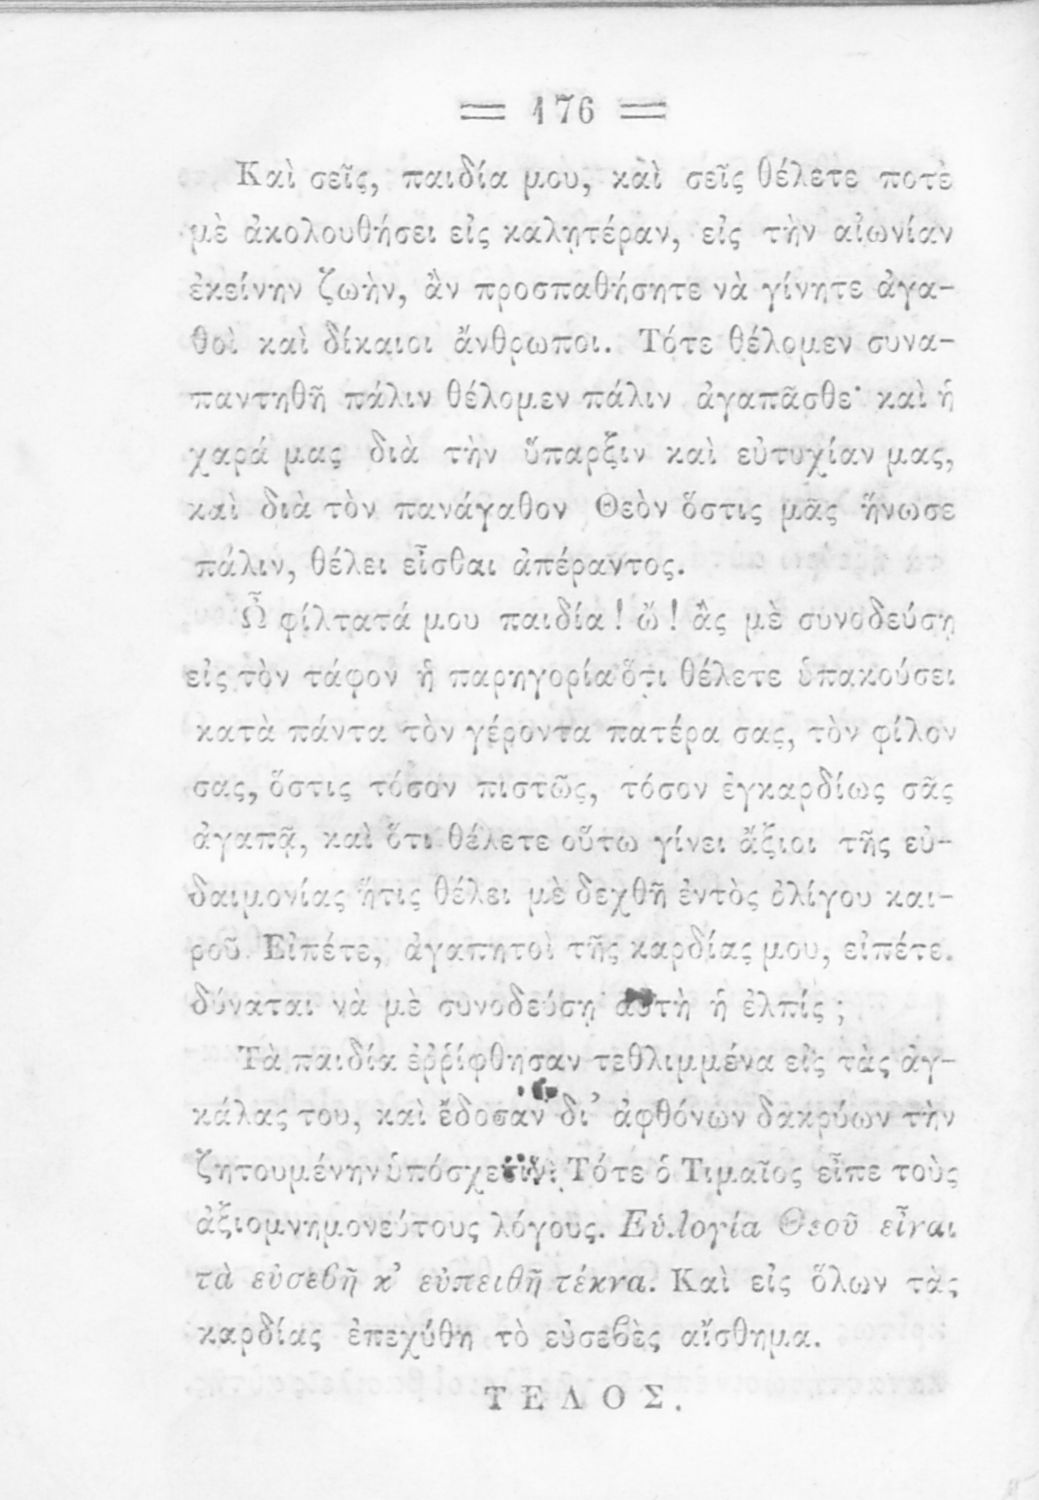 = 176 =
Καὶ σεῖς, παιδία μου, καὶ σεῖς θέλετε ποτὲ
μὲ ἀκολουθήσει εἰς καλητέραν, εἰς τὴν αἰωνίαν
ἐκείνην ζωὴν, ἂν προσπαθήσητε νὰ γίνητε ἀγα-
θοὶ καὶ δίκαιοι ἄνθρωποι. Τότε θέλομεν συνα-
παντηθῆ πάλιν θέλομεν πάλιν ἀγαπᾶσθε· καὶ ἡ
χαρά μας διὰ τὴν ὕπαρξιν καὶ εὐτυχίαν μας,
καὶ διὰ τὸν πανάγαθον Θεὸν ὅστις μᾶς ἥνωσε
πάλιν, θέλει εἶσθαι ἀπέραντος.
Ὦ φίλτατά μου παιδία! ὤ! ἂς μὲ συνοδεύσῃ
εἰς τὸν τάφον ἡ παρηγορία ὅτι θέλετε ὑπακούσει
κατὰ πάντα τὸν γέροντα πατέρα σας, τὸν φίλον
σας, ὅστις τόσον πιστῶς, τόσον ἐγκαρδίως σᾶς
ἀγαπᾷ, καὶ ὅτι θέλετε οὕτω γίνει ἄξιοι τῆς εὐ-
δαιμονίας ἥτις θέλει μὲ δεχθῆ ἐντὸς ὀλίγου και-
ροῦ. Εἰπέτε, ἀγαπητοὶ τῆς καρδίας μου, εἰπέτε.
δύναται νὰ μὲ συνοδεύσῃ αὐτὴ ἡ ἐλπίς;
Τὰ παιδία ἐῤῥίφθησαν τεθλιμμένα εἰς τὰς ἀγ-
κάλας του, καὶ ἔδοσαν δι' ἀφθόνων δακρύων τὴν
ζητουμένην ὑπόσχεσιν. Τότε ὁ Τιμαῖος εἶπε τοὺς
ἀξιομνημονεύτους λόγους. Εὐλογία Θεοῦ εἶναι
τὰ εὐσεβῆ κ' εὐπειθῆ τέκνα. Καὶ εἰς ὅλων τὰς
καρδίας ἐπεχύθη τὸ εὐσεβὲς αἴσθημα.
ΤΕΛΟΣ.